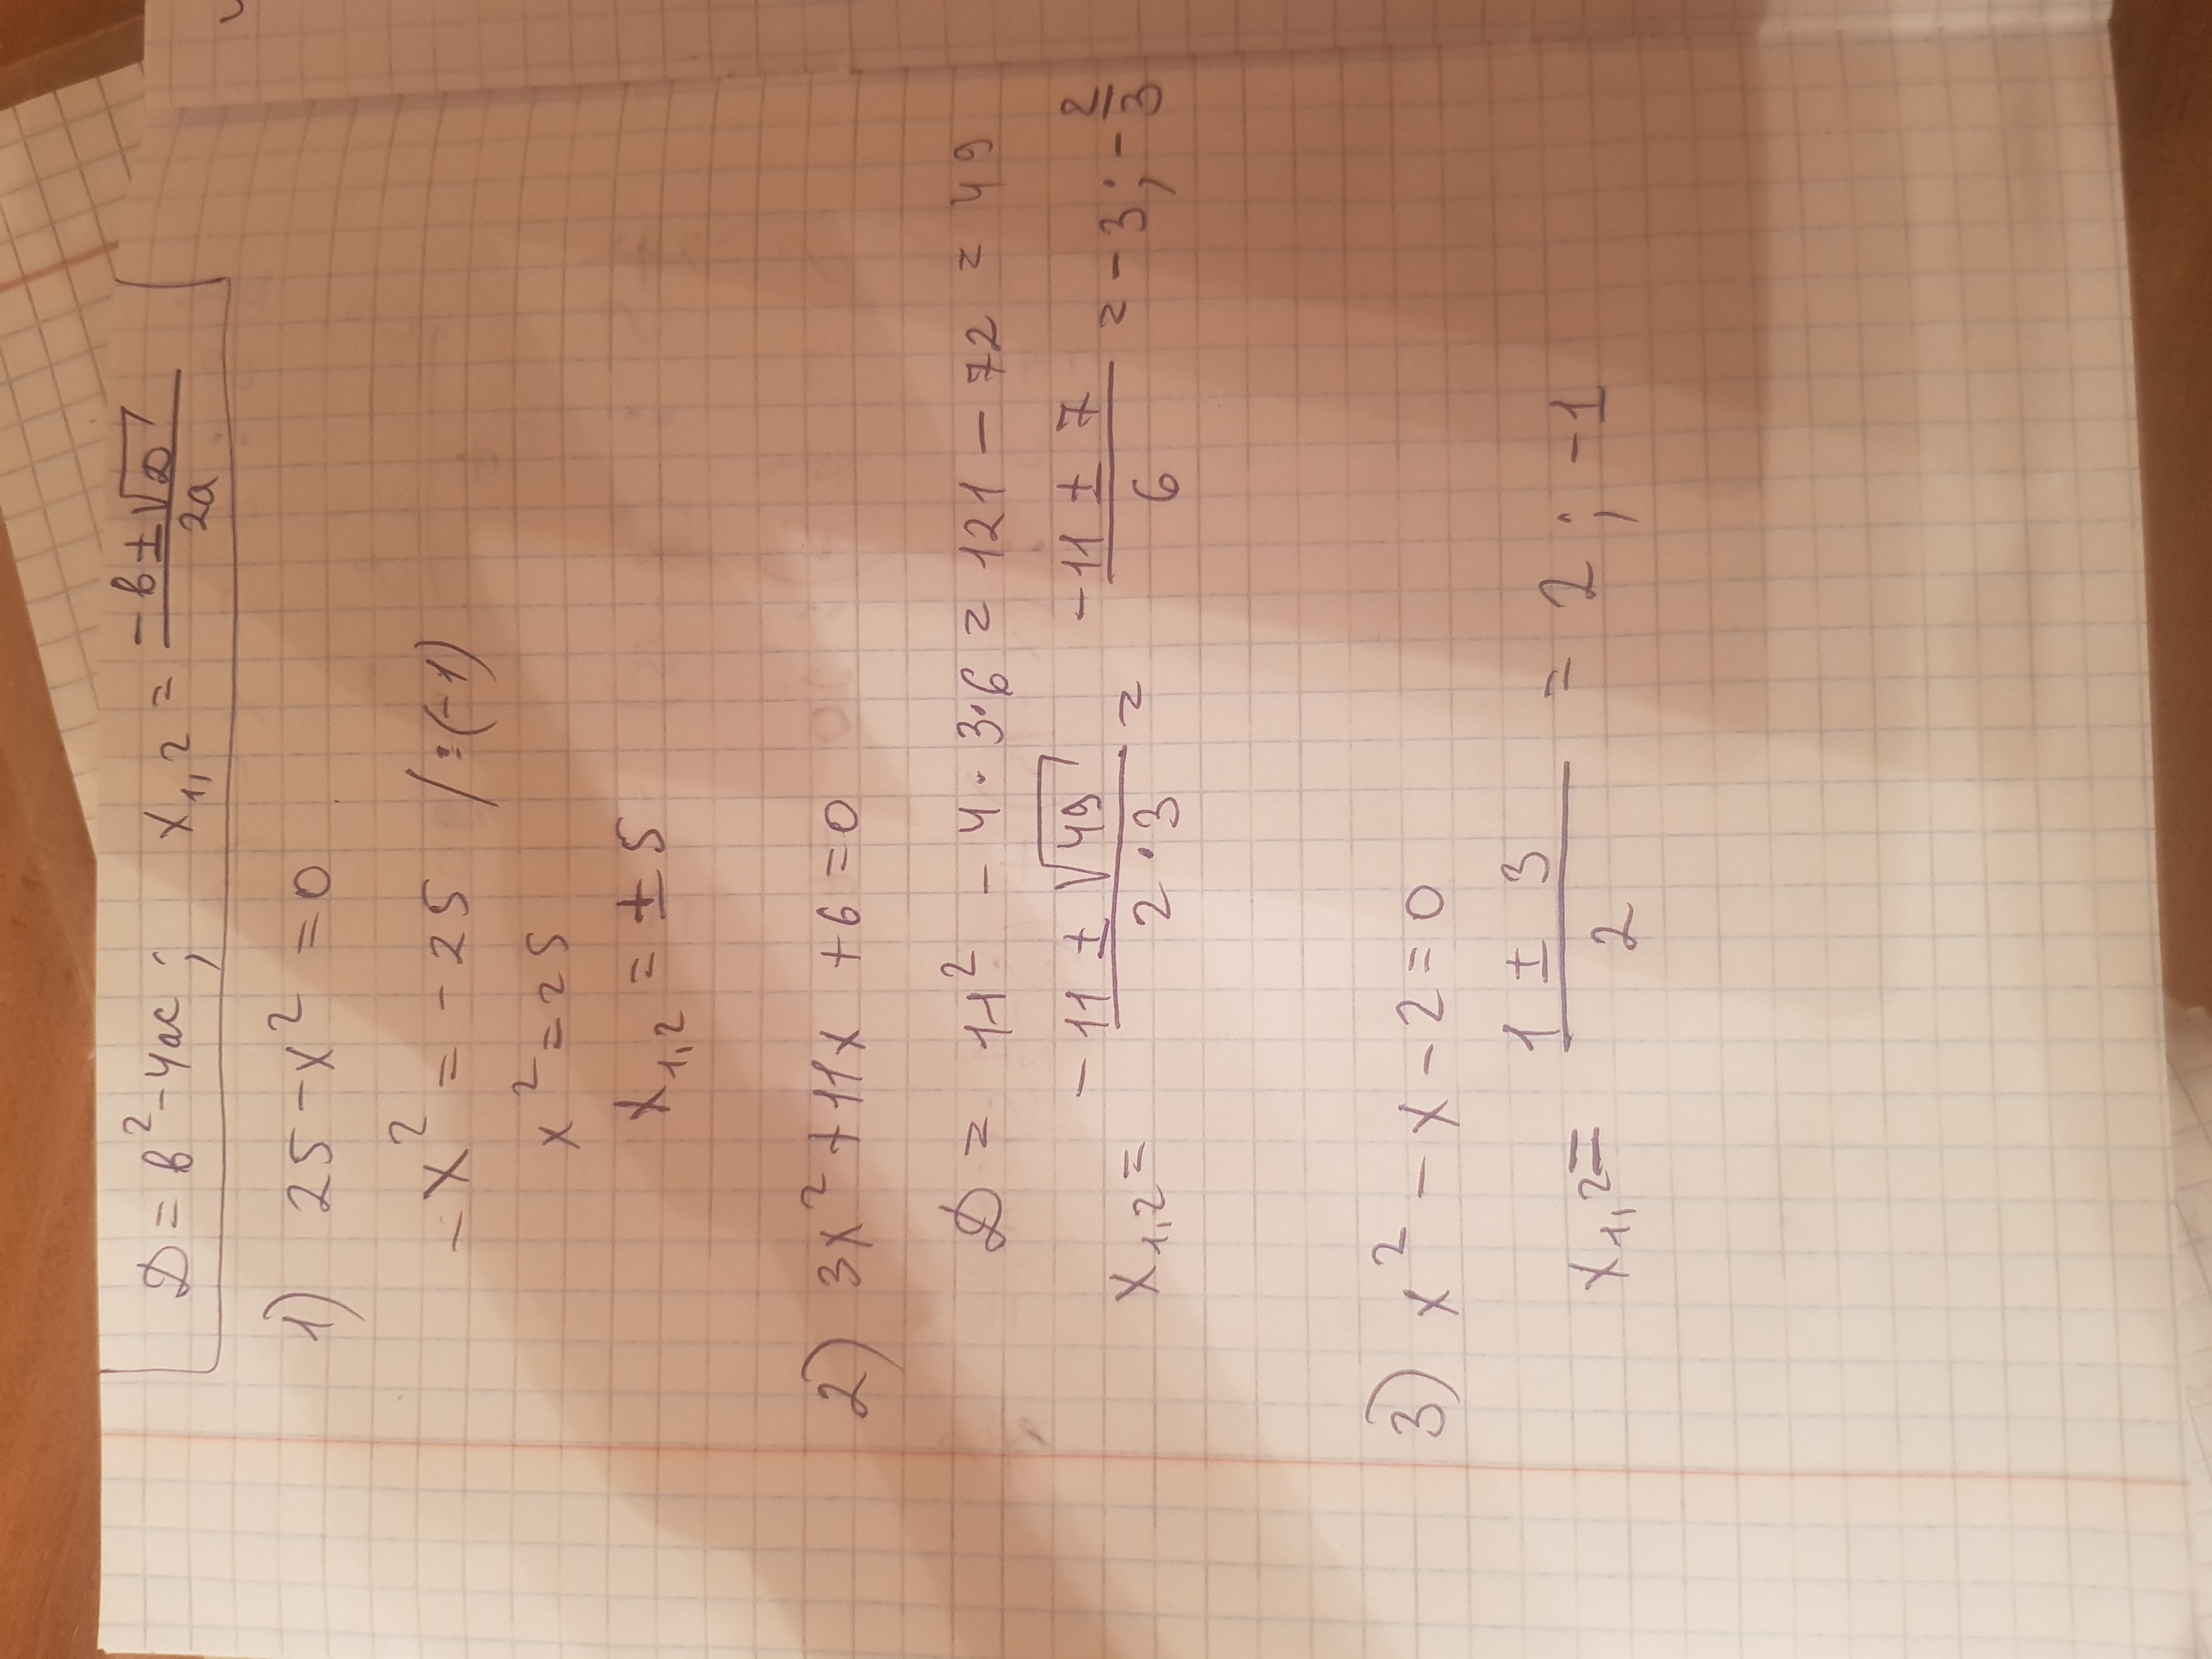 D = b² - 4ac; x₁,₂ = (-b ± √D)/2a
1) 25 - x² = 0
-x² = -25 /:(-1)
x² = 25
x₁,₂ = ±5
2) 3x² + 11x + 6 = 0
D = 11² - 4·3·6 = 121 - 72 = 49
x₁,₂ = (-11 ± √49)/(2·3) = (-11 ± 7)/6 = -3; -2/3
3) x² - x - 2 = 0
x₁,₂ = (1 ± 3)/2 = 2; -1